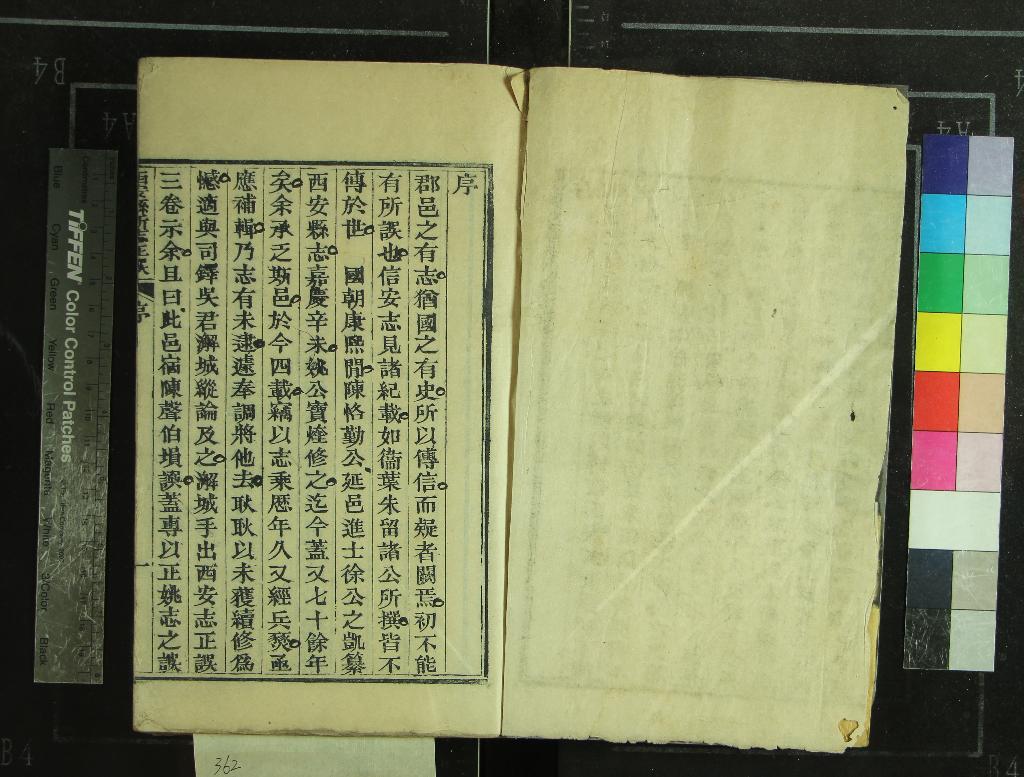 序
郡邑之有志猶國之有史所以傳信而疑者闕焉初不能
有所誤也信安志見諸紀載如衞葉朱留諸公所撰皆不
傳於世 國朝康熙閒陳恪勤公延邑進士徐公之凱纂
西安縣志嘉慶辛未姚公寶煃修之迄今蓋又七十餘年
矣余承乏斯邑於今四載竊以志乘歷年久又經兵燹亟
應補輯乃志有未逮遽奉調將他去耿耿以未獲續修為
憾適與司鐸吳君瀣城縱論及之瀣城手出西安志正誤
三卷示余且曰此邑宿陳聲伯塤譔蓋專以正姚志之誤
序
一
TIFFEN Color Control Patches
Blue
Cyan
Green
Yellow
Red
Magenta
White
3/Color
Black
B4
A4
A4
B4
B4
362